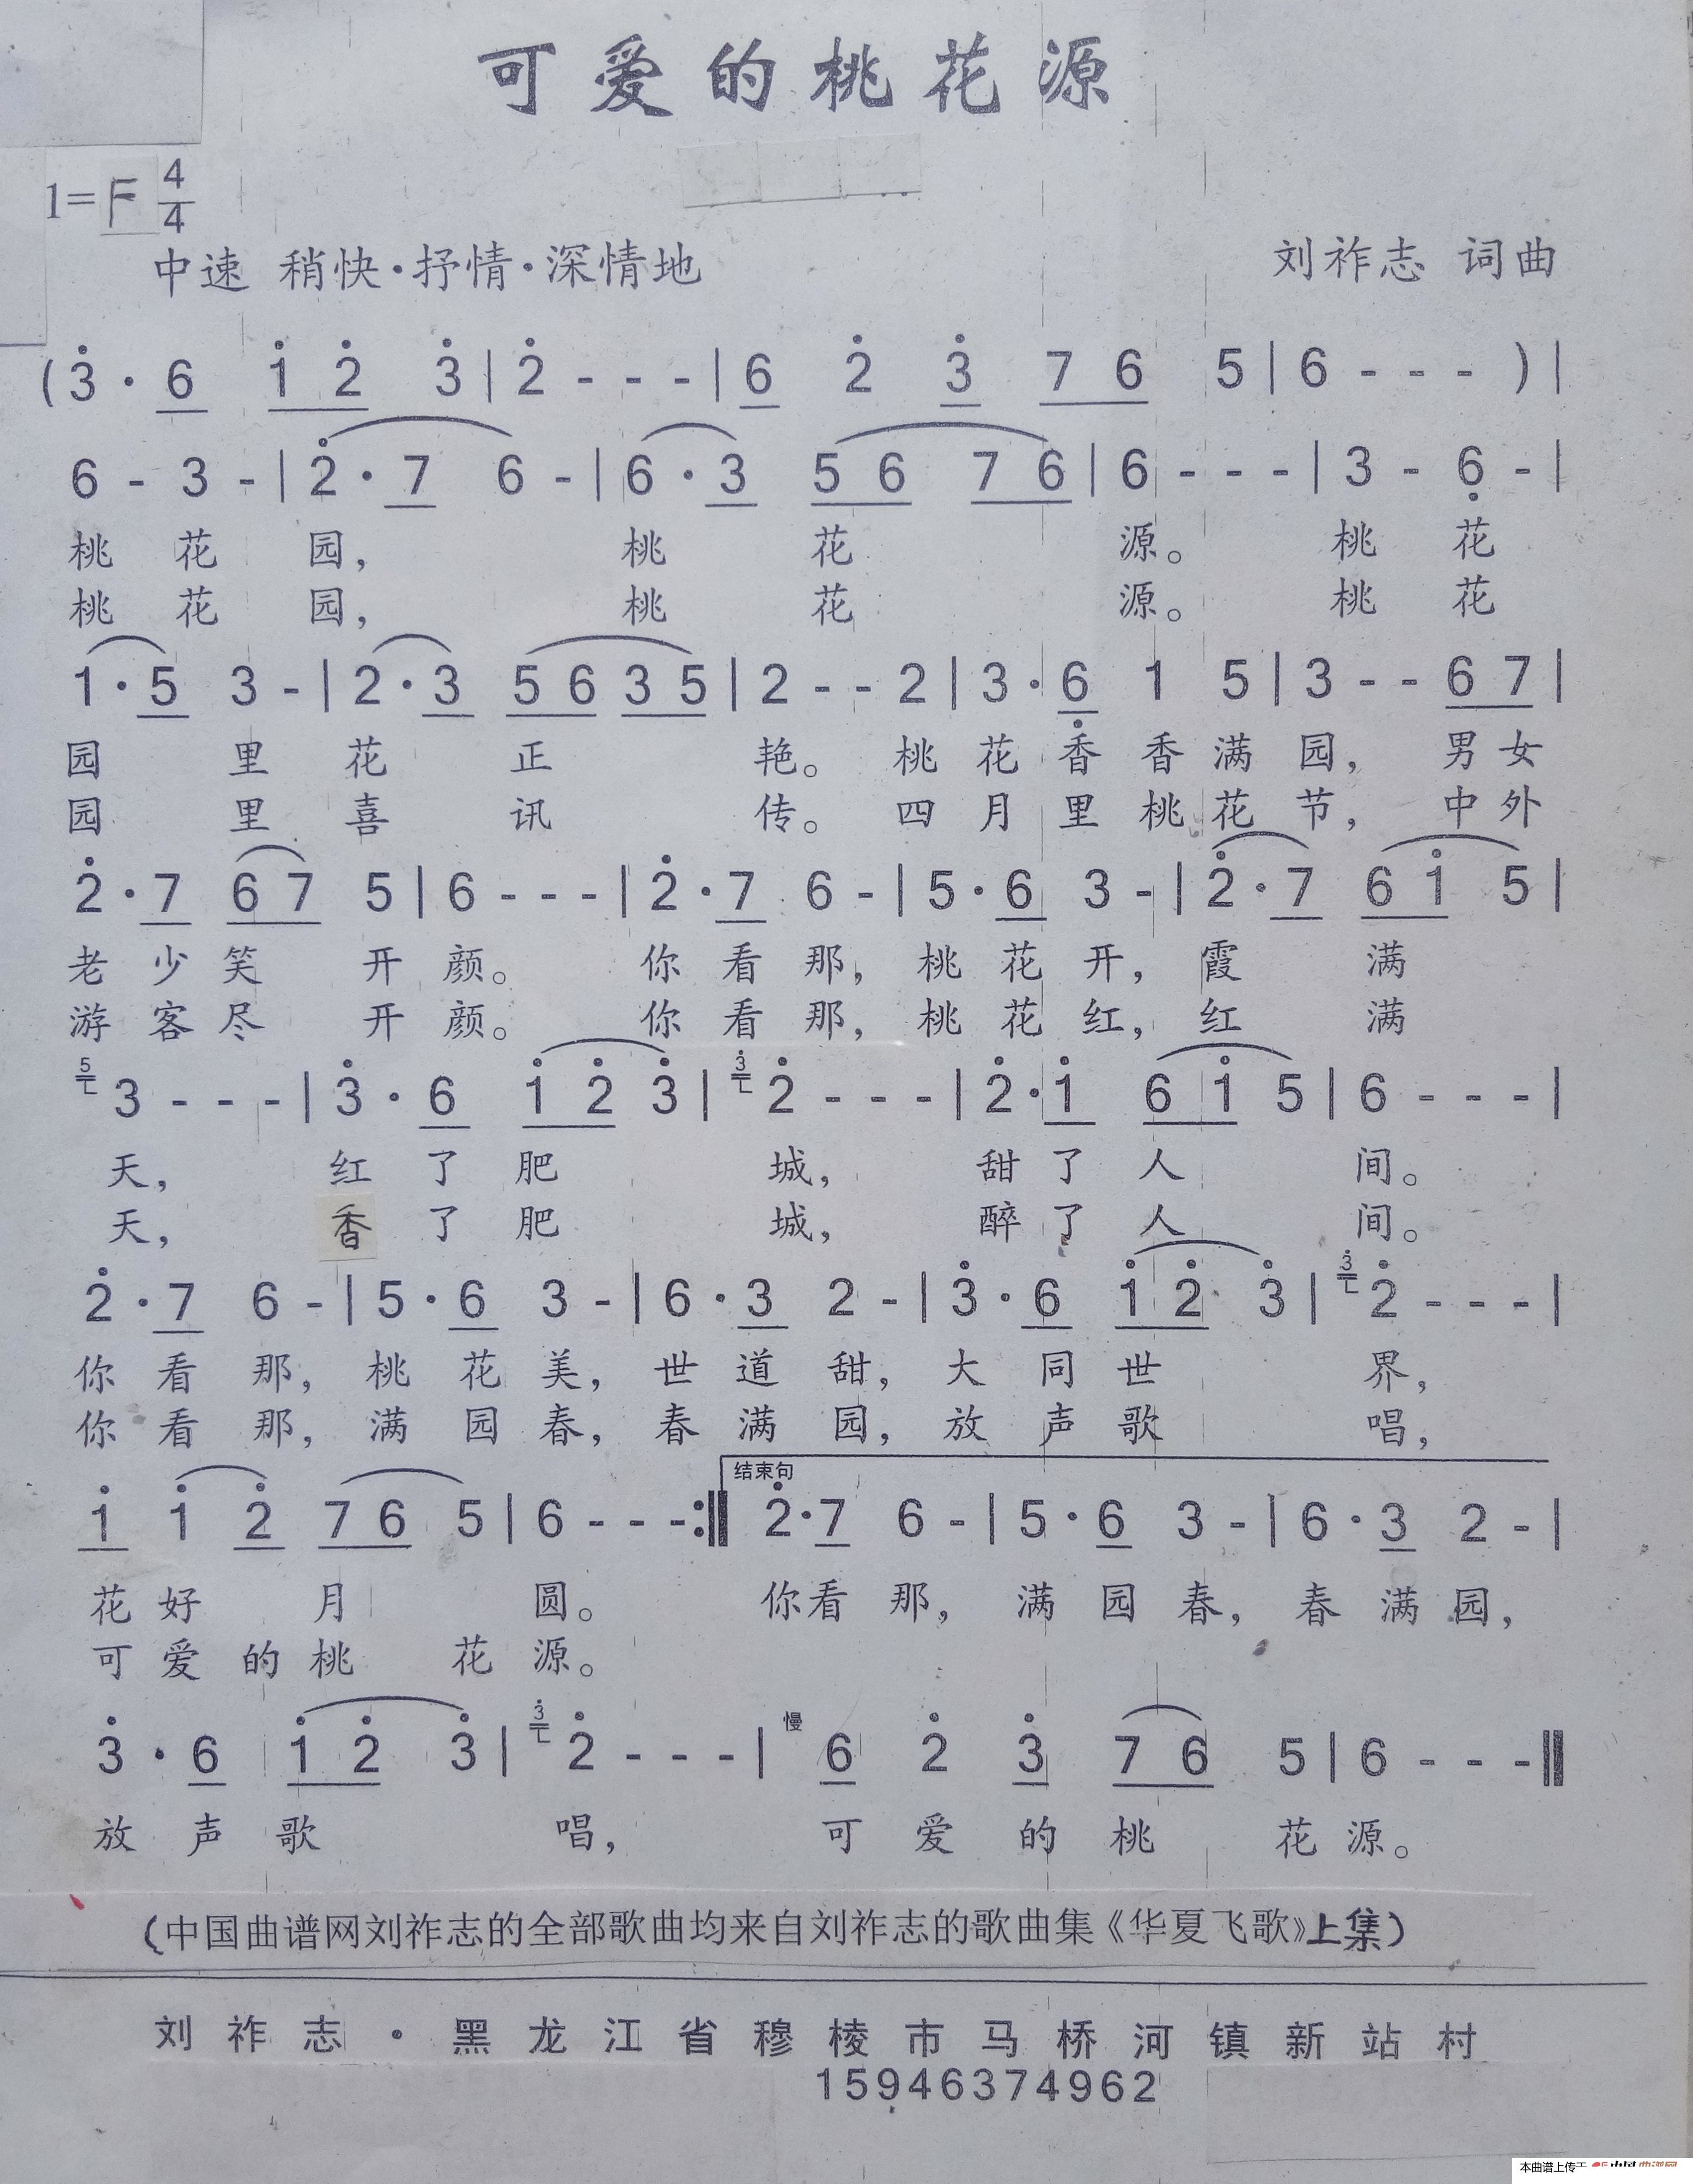 可爱的桃花源
1=F 4/4
中速 稍快·抒情·深情地 刘祚志 词曲
(3̇ · 6 1̇ 2̇ 3̇ | 2̇ - - - | 6 2̇ 3̇ 7 6 5 | 6 - - - ) |
6 - 3 - | 2̇ · 7 6 - | 6 · 3 5 6 7 6 | 6 - - - | 3 - 6̣ - |
桃 花 园, 桃 花 源。 桃 花
桃 花 园, 桃 花 源。 桃 花
1 · 5 3 - | 2 · 3 5 6 3 5 | 2 - - 2 | 3 · 6̣ 1 5 | 3 - - 6 7 |
园 里 花 正 艳。 桃 花 香 香 满 园, 男 女
园 里 喜 讯 传。 四 月 里 桃 花 节, 中 外
2̇ · 7 6 7 5 | 6 - - - | 2̇ · 7 6 - | 5 · 6 3 - | 2̇ · 7 6 1̇ 5 |
老 少 笑 开 颜。 你 看 那, 桃 花 开, 霞 满
游 客 尽 开 颜。 你 看 那, 桃 花 红, 红 满
5 3 - - - | 3̇ · 6 1̇ 2̇ 3̇ | 3̇ 2̇ - - - | 2̇ · 1̇ 6 1̇ 5 | 6 - - - |
天, 红 了 肥 城, 甜 了 人 间。
天, 香 了 肥 城, 醉 了 人 间。
2̇ · 7 6 - | 5 · 6 3 - | 6 · 3 2 - | 3̇ · 6 1̇ 2̇ 3̇ | 3̇ 2̇ - - - |
你 看 那, 桃 花 美, 世 道 甜, 大 同 世 界,
你 看 那, 满 园 春, 春 满 园, 放 声 歌 唱,
结束句
1̇ 1̇ 2̇ 7 6 5 | 6 - - - :‖ 2̇ · 7 6 - | 5 · 6 3 - | 6 · 3 2 - |
花 好 月 圆。 你 看 那, 满 园 春, 春 满 园,
可 爱 的 桃 花 源。
3̇ · 6 1̇ 2̇ 3̇ | 3̇ 2̇ - - - | 慢 6 2̇ 3̇ 7 6 5 | 6 - - - ‖
放 声 歌 唱, 可 爱 的 桃 花 源。
(中国曲谱网刘祚志的全部歌曲均来自刘祚志的歌曲集《华夏飞歌》上集)
刘祚志·黑龙江省穆棱市马桥河镇新站村
15946374962
本曲谱上传于 中国曲谱网